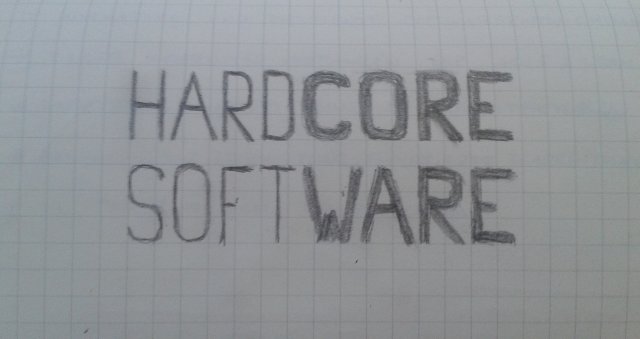 HARDCORE
SOFTWARE